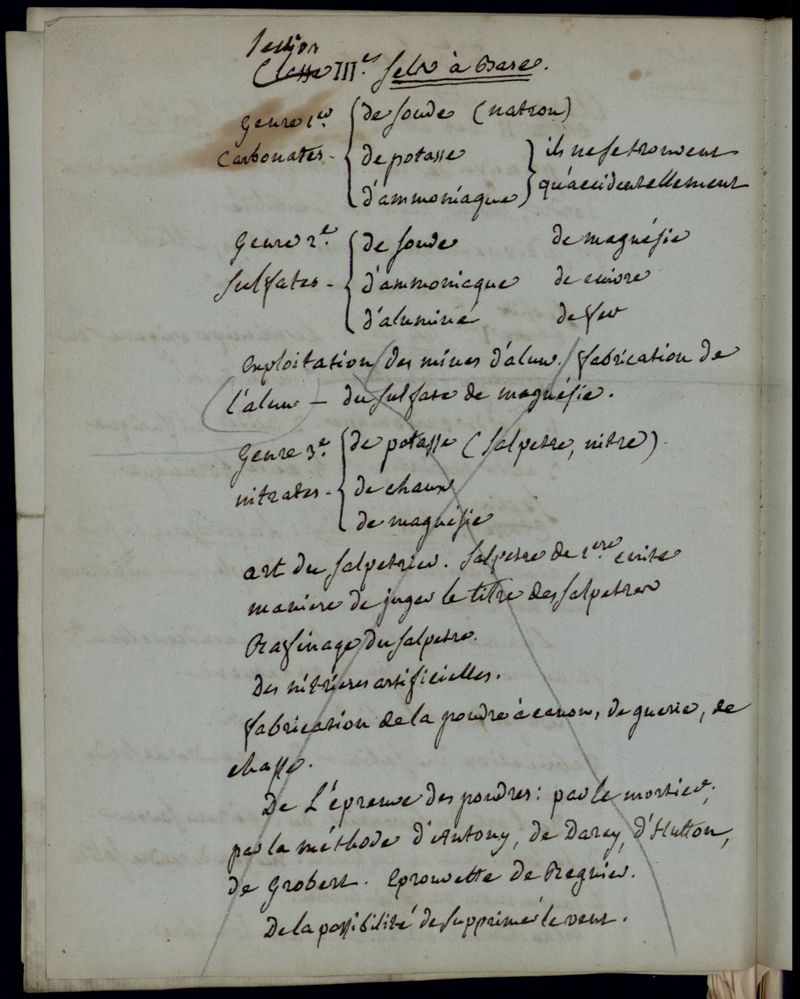 Section
Classe IIIe Sels à Base.
Genre 1er { de soude (natron)
Carbonates - { de potasse } ils ne se trouvent
{ d'ammoniaque } qu'accidentellement
Genre 2e { de soude de magnésie
Sulfates - { d'ammoniaque de cuivre
{ d'alumine de fer
Exploitation des mines d'alun. fabrication de
l'alun — du sulfate de magnésie.
Genre 3e { de potasse (salpetre, nitre)
nitrates - { de chaux
{ de magnésie
art du salpetrier. Salpetre de 1ere cuite
maniere de juger le titre des salpetres
Rafinage du salpetre.
Des nitrieres artificielles.
fabrication de la poudre à canon, de guerre, de
chasse.
De L'épreuve des poudres: par le mortier,
par la méthode d'Antony, de Darcy, d'Hutton,
de Grobert. Eprouvette de Regnier.
De la possibilité de supprimer le vent.